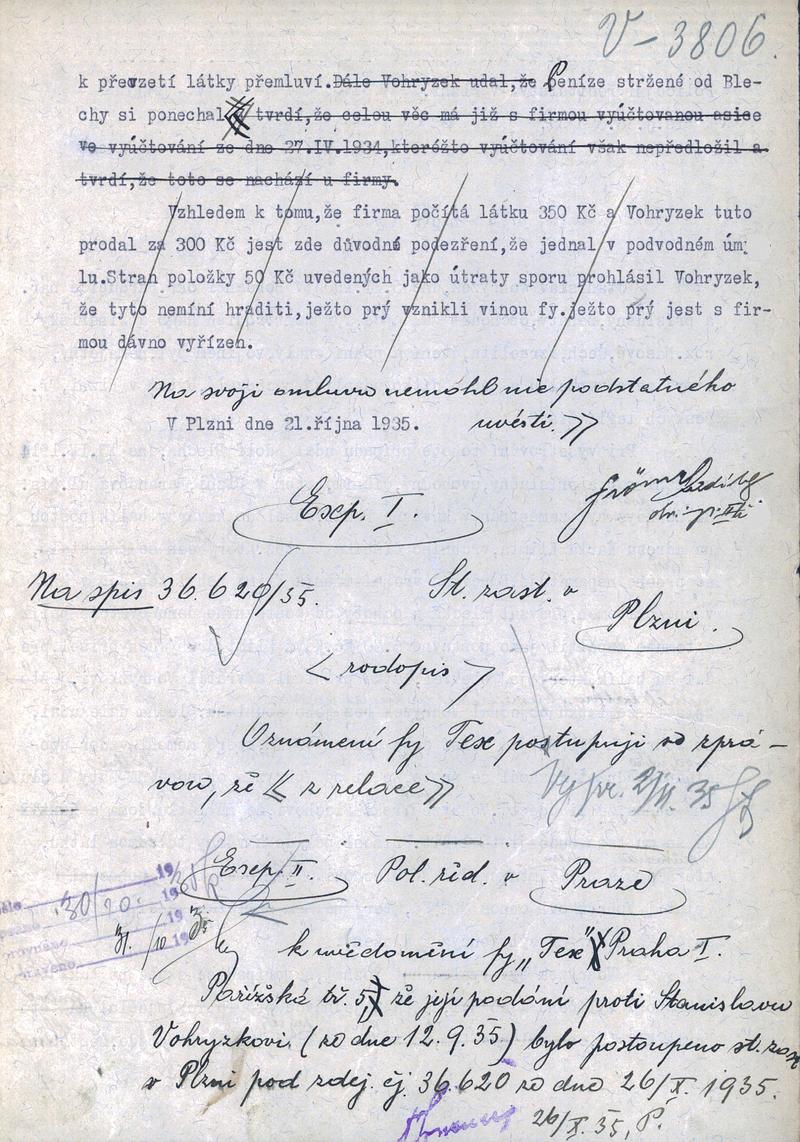 V-3806
k převzetí látky přemluví. Dále Vohryzek udal,že Peníze stržené od Ble-
chy si ponechal tvrdí,že celou věc má již s firmou vyúčtovanou asice
ve vyúčtování ze dne 27.IV.1934,kteréžto vyúčtování však nepředložil a
tvrdí,že toto se nachází u firmy.
Vzhledem k tomu,že firma počítá látku 350 Kč a Vohryzek tuto
prodal za 300 Kč jest zde důvodné podezření,že jednal v podvodném úm
lu.Stran položky 50 Kč uvedených jako útraty sporu prohlásil Vohryzek,
že tyto nemíní hraditi,ježto prý vznikli vinou fy.ježto prý jest s fir-
mou dávno vyřízen.
Na svoji omluvu nemohl nic podstatného
V Plzni dne 21.října 1935. uvésti.
Exp. I.
Na spis 36.620/35. St. zast. v
Plzni.
< rodopis >
Oznámení fy Tex postupuji se zprá-
vou, že << z relace >>
Vypr. 2/11. 35
Exp. II. Pol. řed. v Praze
19
30/10. 19
31/10 19 35
k uvědomění fy „Tex" Praha I.
Pařížská tř. 5, že její podání proti Stanislavu
Vohryzkovi (ze dne 12.9.35.) bylo postoupeno st. zast.
v Plzni pod zdej. čj 36.620 ze dne 26/X. 1935.
26/X. 35, P.